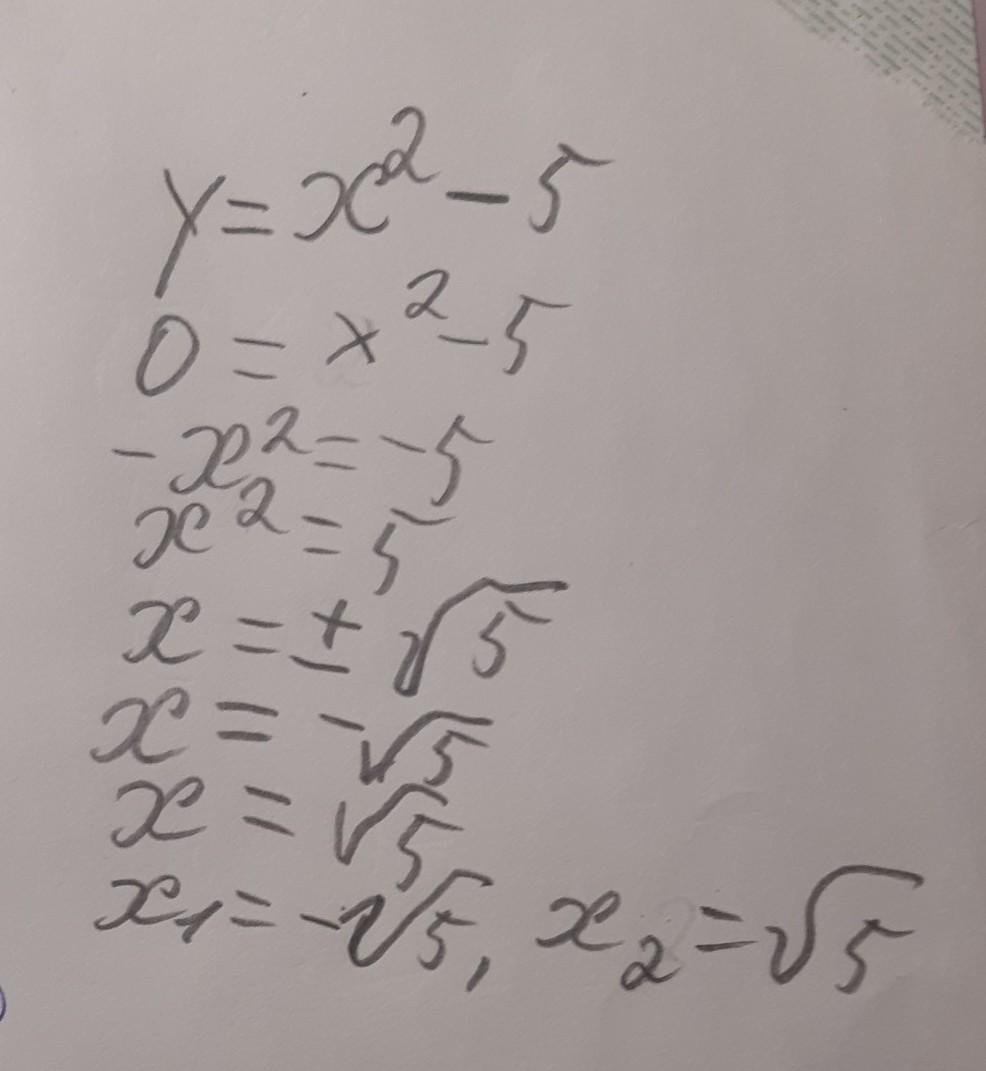 y = x² - 5
0 = x² - 5
-x² = -5
x² = 5
x = ± √5
x = -√5
x = √5
x₁ = -√5, x₂ = √5